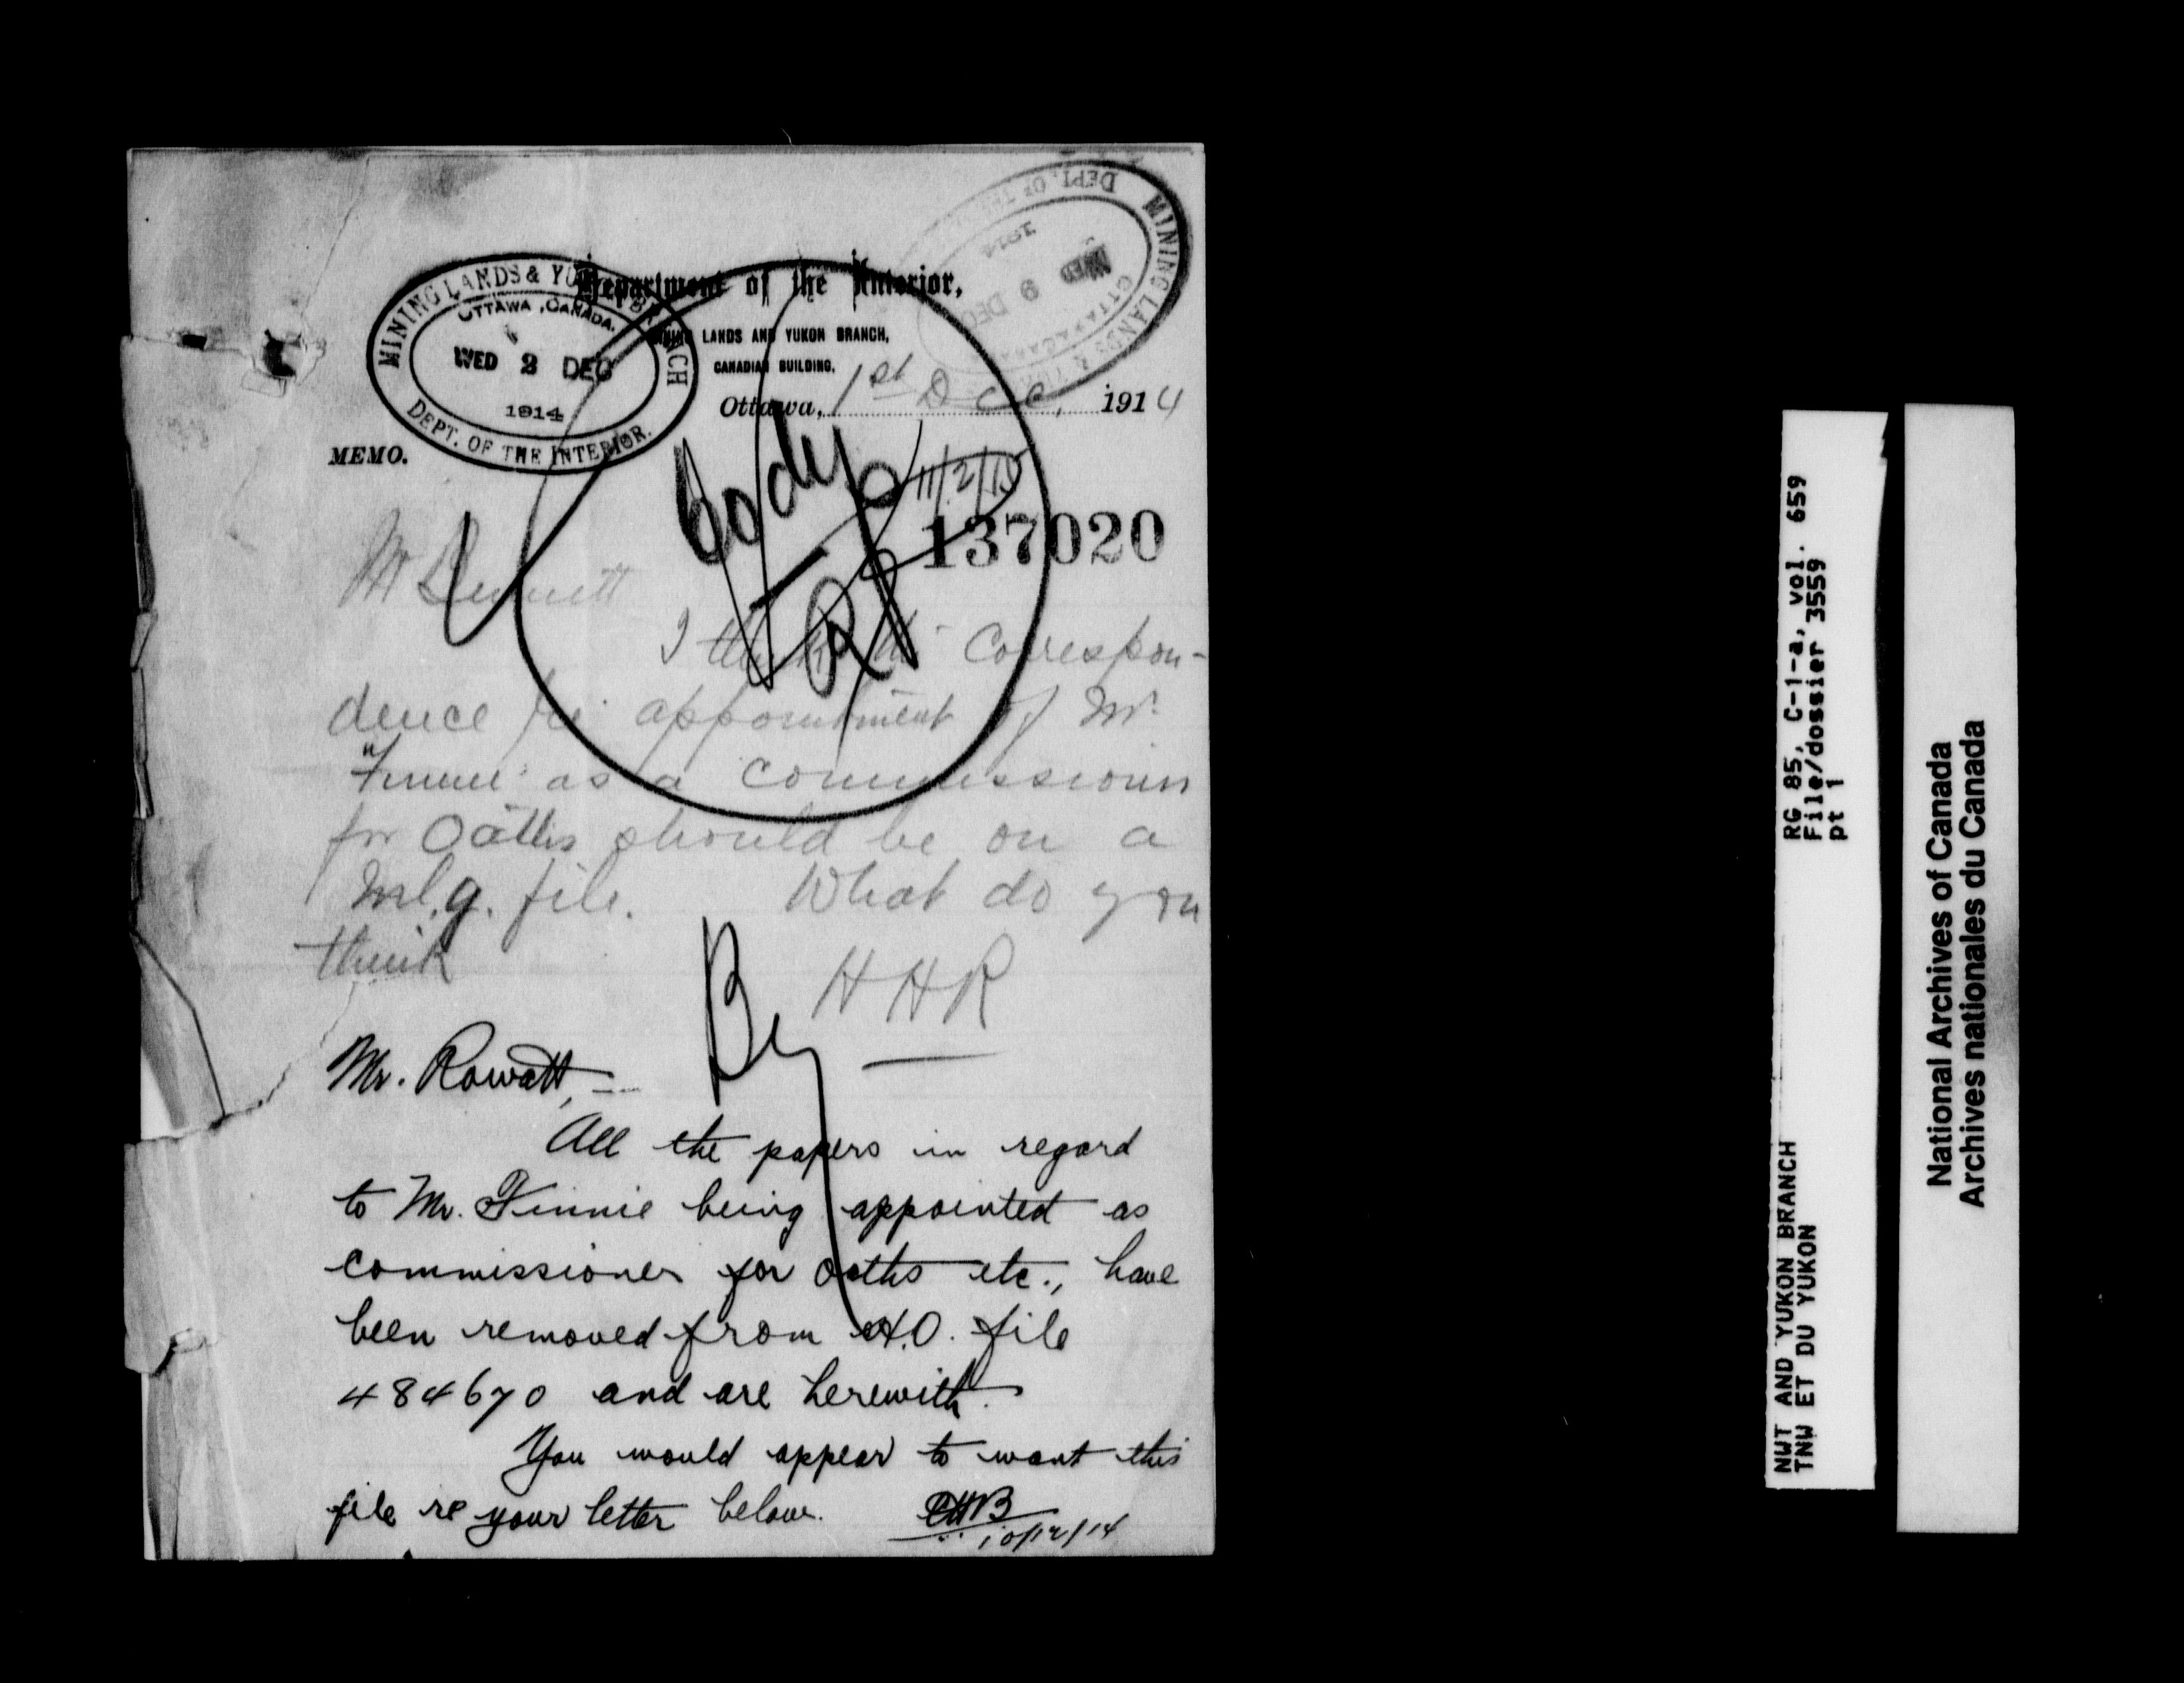 MINING LANDS & YUKON BRANCH
OTTAWA, CANADA.
WED 2 DEC
1914
DEPT. OF THE INTERIOR.
MINING LANDS &
DEPT. OF THE
OTTAWA, CANADA
WED 9 DEC
1914
Department of the Interior,
MINING LANDS AND YUKON BRANCH,
CANADIAN BUILDING,
Ottawa, 1st Dec, 1914
MEMO.
body
11/2/15
137020
Mr
I think the Correspon-
dence re appointment of Mr.
Finnie as a Commissioner
for Oaths should be on a
file. What do you
think
HHR
Mr. Rowatt,
All the papers in regard
to Mr. Finnie being appointed as
commissioner for oaths etc., have
been removed from H.O. file
484670 and are herewith.
You would appear to want this
file re your letter below.
10/12/14
NWT AND YUKON BRANCH
TNW ET DU YUKON
RG 85, C-1-a, vol. 659
File/dossier 3559
pt 1
National Archives of Canada
Archives nationales du Canada